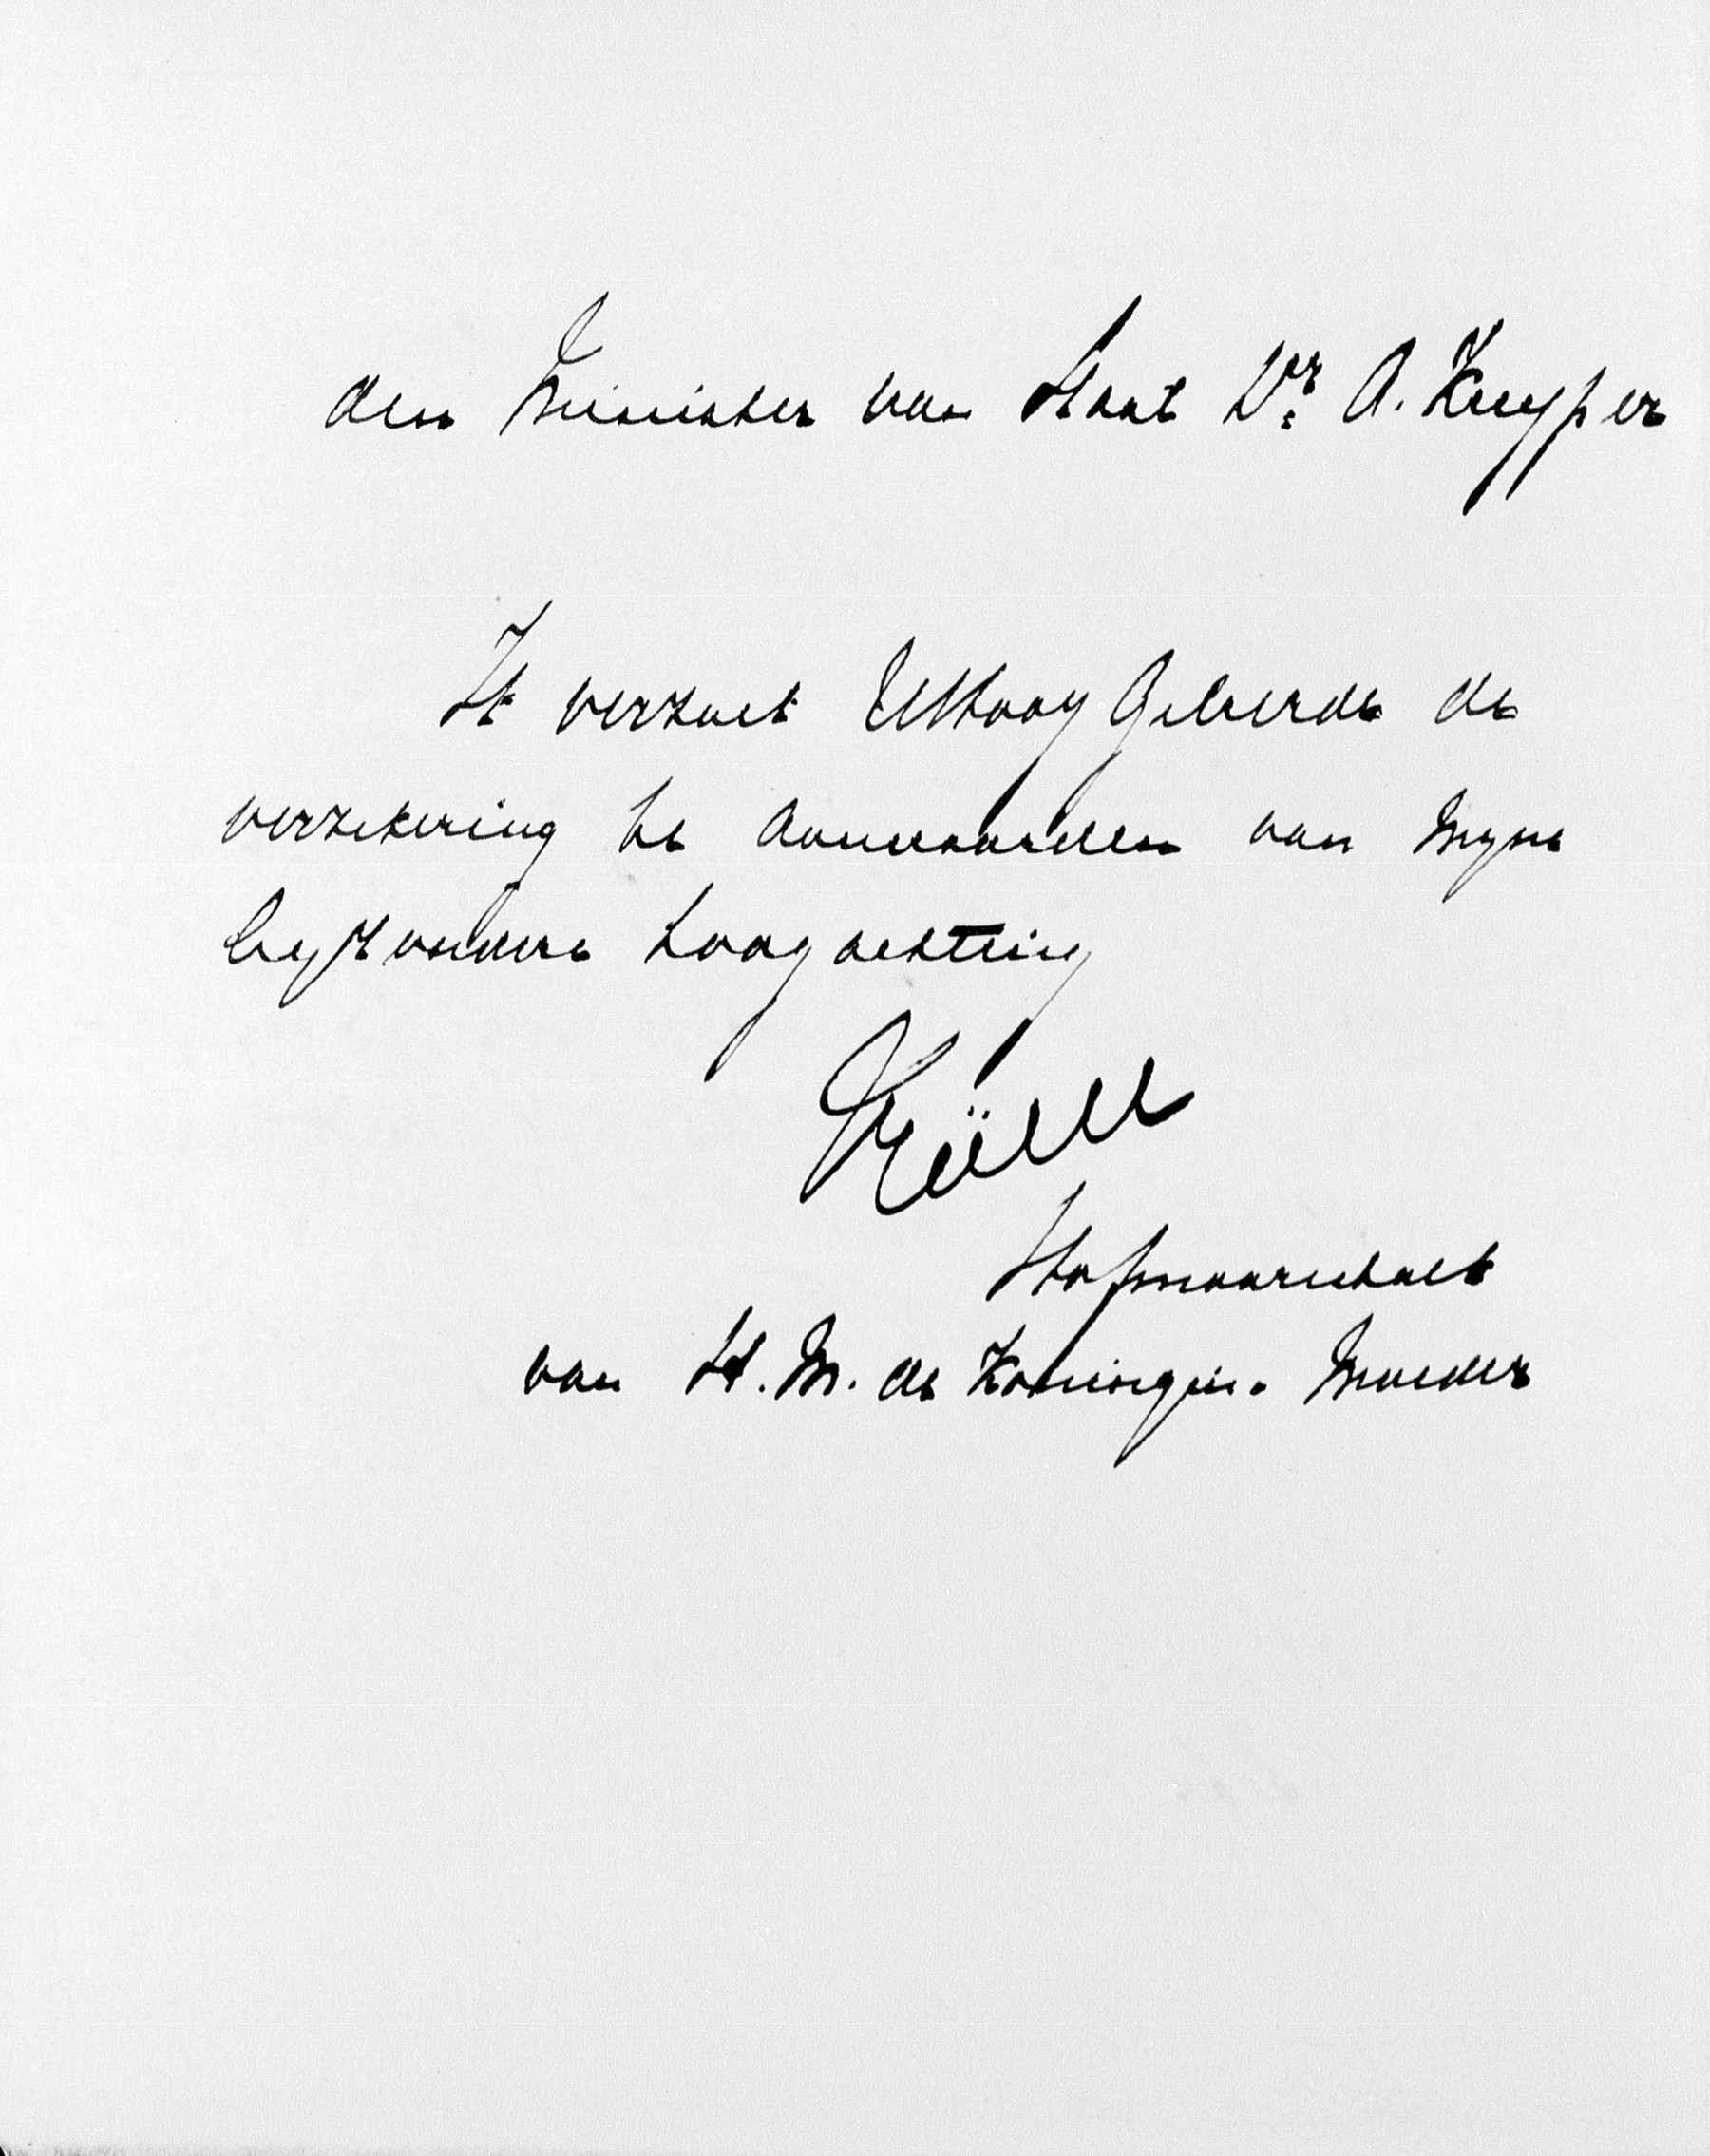 den Minister van Staat Dr. A. Kuyper
Ik verzoek UHoogGeleerde de
verzekering te aanvaarden van myne
byzondere hoogachting
Röell
Hofmaarschalk
van H. M. de Koningin-Moeder